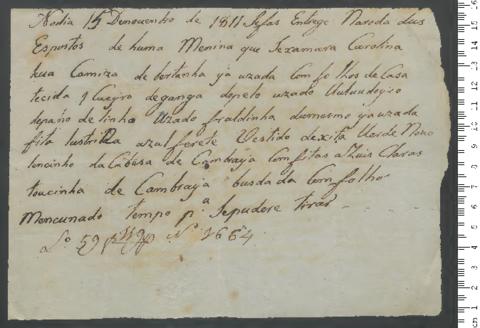 No dia 15 Denouembro de 1811 Sefas Entrege Naroda dus
Espostos de huma Menina que Sexamara Carolina
hua Camiza de bertanha ja uzada Com folhos de Casa
tecida 1 Cueyro de ganga depeto uzado
depaño de linho Uzado fraldinha domesmo ja uzada
fita Lustrilha azul ferete Vestido dexita Verde Novo
loncinho da Cabesa de Cambraya Com fitas azuis Claras
toucinha de Cambraya busdada Com folho
Moncunado tempo p.ª Sepudere tirar
L.º 59 N.º 1664